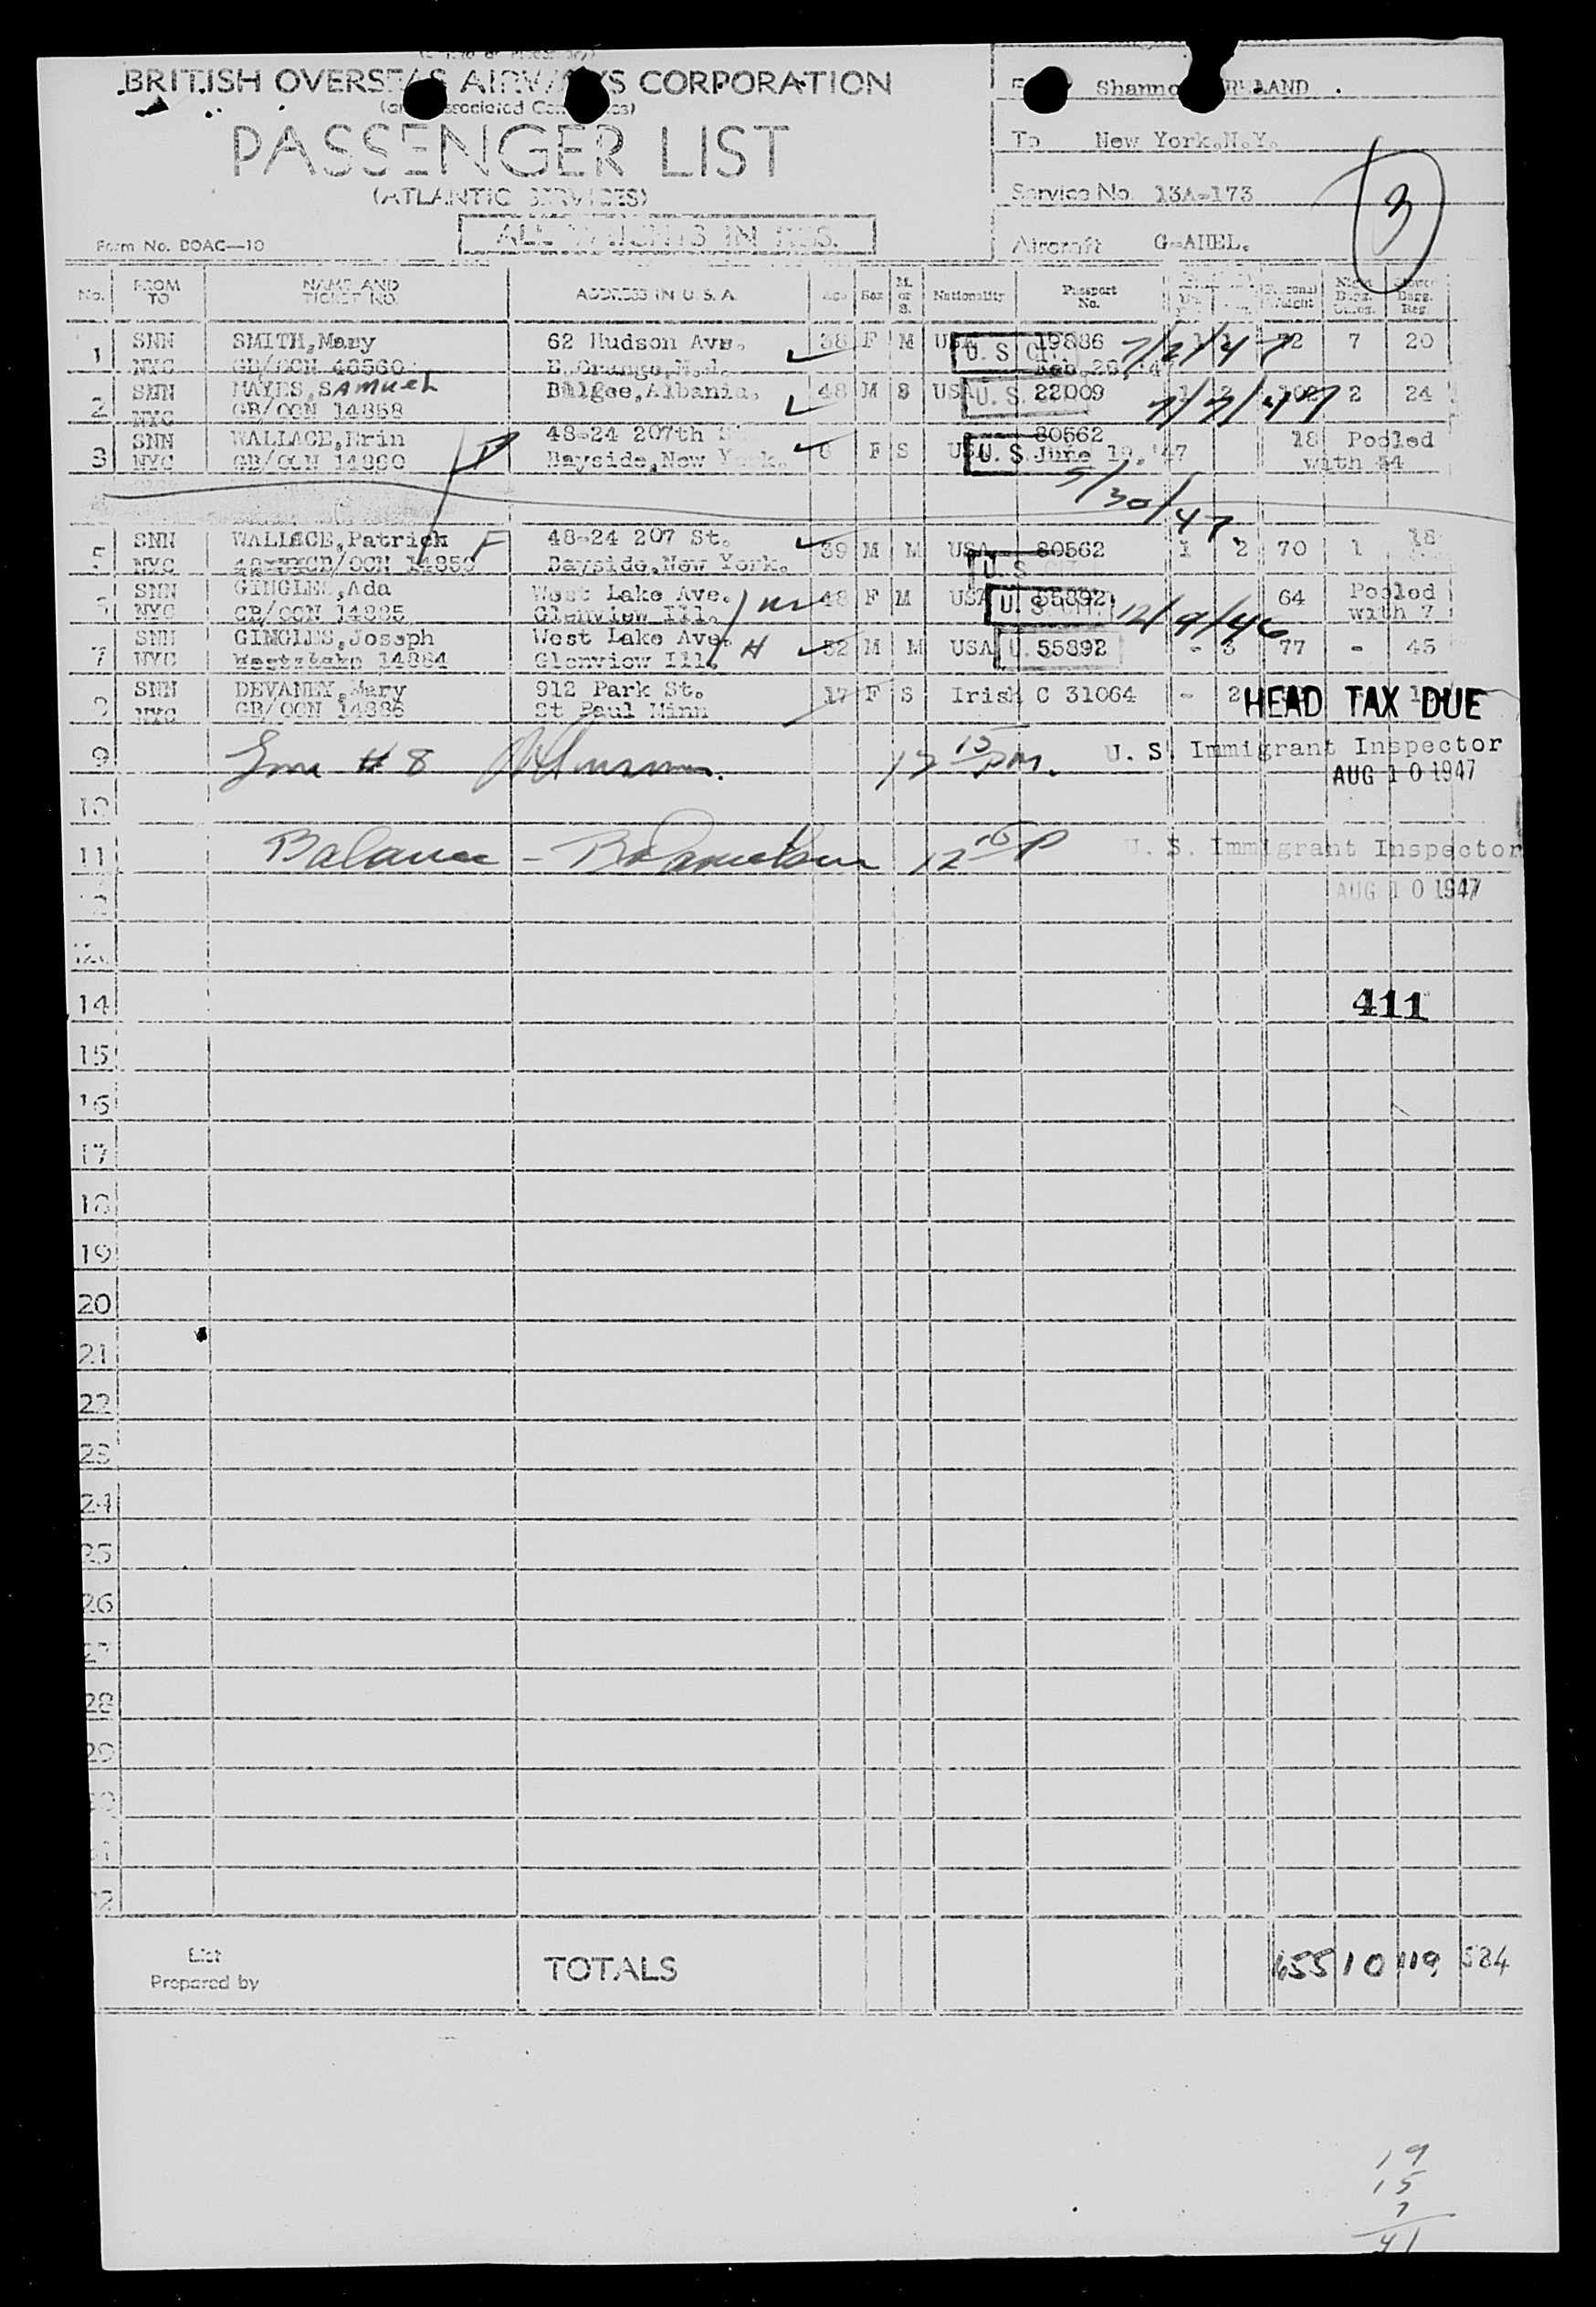 BRITISH OVERSEAS AIRWAYS CORPORATION
PASSENGER LIST
(ATLANTIC SERVICES)
ALL WEIGHTS IN KGS.
Form No. BOAC—10
Shanno IRELAND
To New York.N.Y.
Service No. 13A-173
Aircraft G-AHEL.
3
No. FROM TO NAME AND TICKET NO. ADDRESS IN U.S.A. Age Sex M. or S. Nationality Passport No.
1 SNN SMITH,Mary 62 Hudson Ave. 38 F M USA 19886 1 1 72 7 20
NYC GB/OCN 48560 E.Orange,N.J. U. S. CIT. Feb.26, 7/2/47
2 SNN HAYES,SAmueL Bilgee,Albania. 48 M S USA 22009 1 2 2 24
NYC GB/OCN 14858 U. S. 7/7/47
3 SNN WALLACE,Erin 48-24 207th F S 80562 18 Pooled
NYC GB/OCN 14860 Bayside,New York. U. S. June 19,'47 with
5/30/47
5 SNN WALLACE,Patrick F 48-24 207 St. 39 M M USA 80562 1 2 70 1 18
NYC Bayside,New York. U. S. CIT.
SNN GINGLES,Ada West Lake Ave. 48 F M USA 55892 64 Pooled
NYC GB/OCN 14885 Glenview Ill. U. S. CIT. 12/9/46 with 7
7 SNN GINGLES,Joseph West Lake Ave. H 52 M M USA 55892 - 3 77 - 45
NYC 14884 Glenview Ill.
8 SNN DEVANEY,Mary 912 Park St. 17 F S Irish C 31064 - 2
NYC GB/OCN 14886 St Paul Minn
HEAD TAX DUE
9 # 8 12 15 PM. U. S. Immigrant Inspector
AUG 10 1947
10
11 Balance - 12 15 P U. S. Immigrant Inspector
AUG 10 1947
12
13
14 411
15
16
17
18
19
20
21
22
23
24
25
26
27
28
29
List
Prepared by TOTALS 655 10 119 584
19
15
7
41